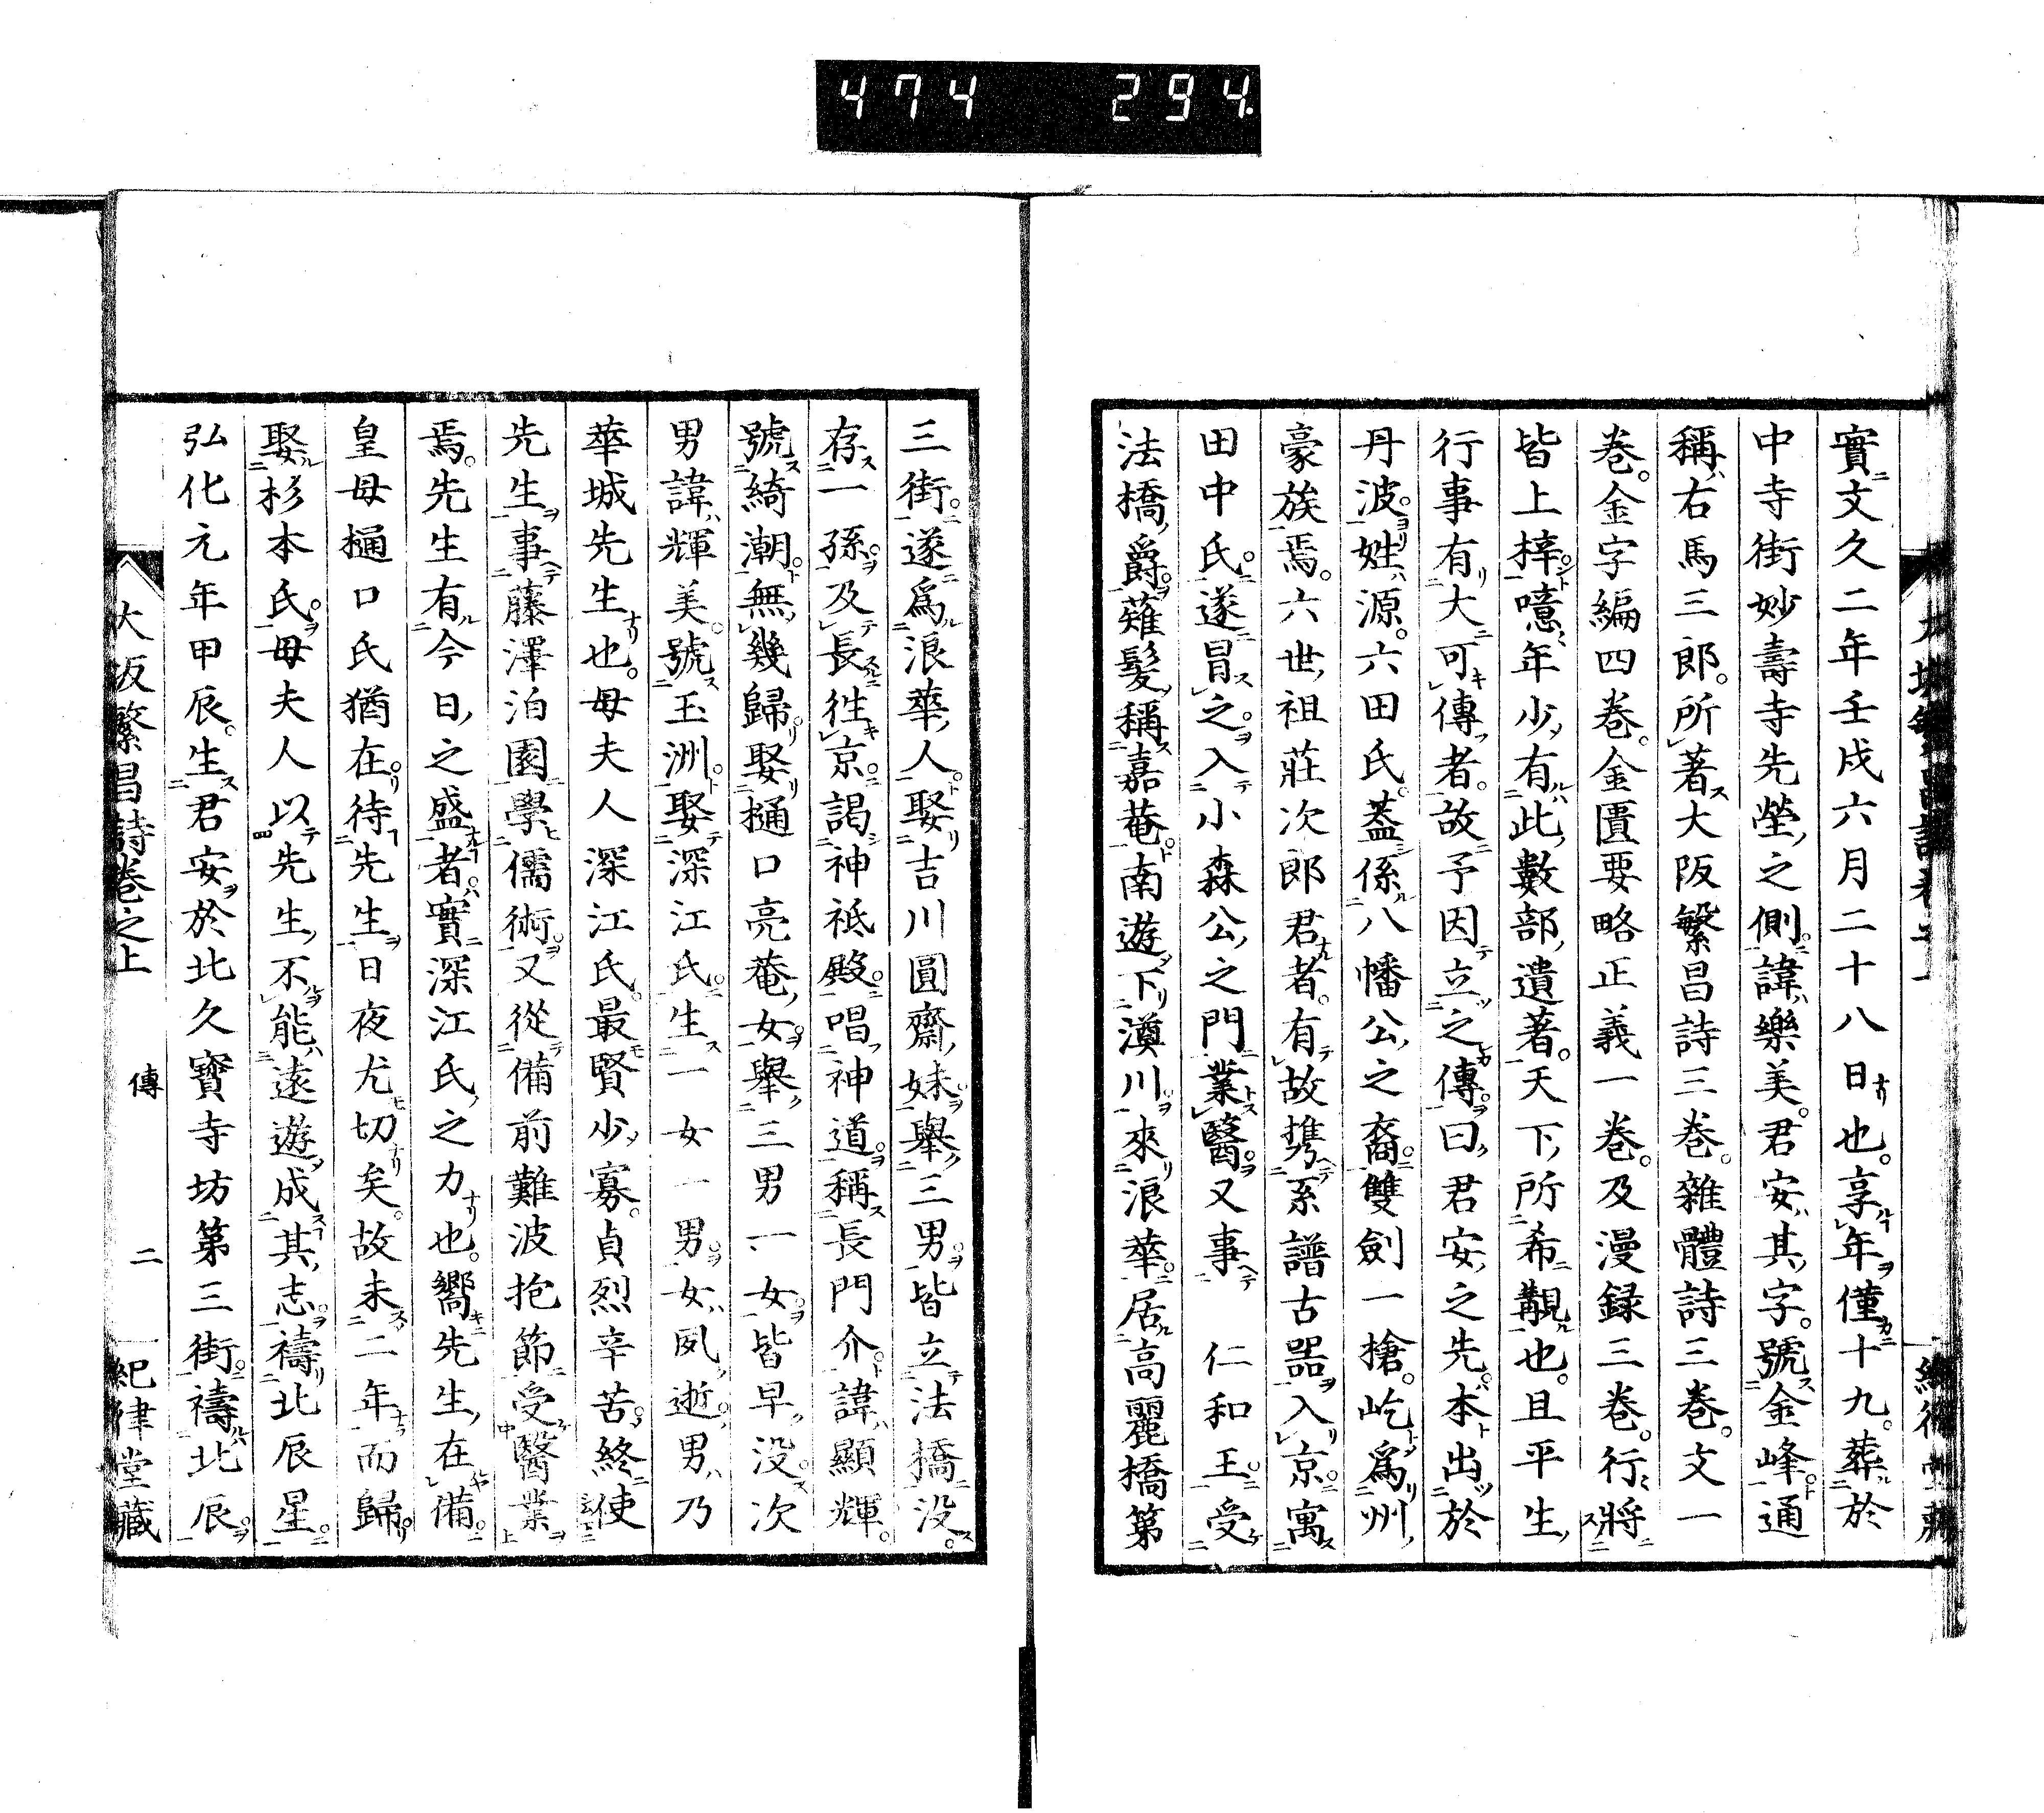 474 294
實文久二年壬戌六月二十八日也。享年僅十九。葬於
中寺街妙壽寺先塋之側。諱樂美。君安其字。號金峰。通
稱右馬三郎。所著大阪繁昌詩三巻。雜體詩三巻。文一
巻。金字編四巻。金匱要略正義一巻。及漫録三巻。行將
皆上梓。噫年少有此數部遺著。天下所希覯也。且平生
行事有大可傳者。故予因立之傳。曰君安之先。本出於
丹波。姓源。六田氏。蓋係八幡公之裔。雙劍一槍。屹爲州
豪族焉。六世祖莊次郎君者。有故携系譜古器入京。寓
田中氏。遂冒之。入小森公之門業醫。又事 仁和王。受
法橋爵。薙髮稱嘉菴。南遊下澱川。來浪華。居高麗橋第
三街。遂爲浪華人。娶吉川圓齋妹。舉三男。皆立法橋没。
存一孫。及長徃京。謁神祇殿。唱神道。稱長門介。諱顯輝。
號綺潮。無幾歸。娶樋口亮菴女。舉三男一女。皆早没。次
男諱輝美。號玉洲。娶深江氏。生一女一男。女夙逝。男乃
華城先生也。母夫人深江氏。最賢。少寡。貞烈辛苦。終使
先生事藤澤泊園學儒術。又從備前難波抱節受醫業
焉。先生有今日之盛者。實深江氏之力也。嚮先生在備。
皇母樋口氏猶在。待先生日夜尤切矣。故未二年而歸。
娶杉本氏。母夫人以先生不能遠遊成其志。禱北辰星。
弘化元年甲辰。生君安於北久寳寺坊第三街。禱北辰。
大坂繁昌詩巻之上 傳 二 紀律堂藏